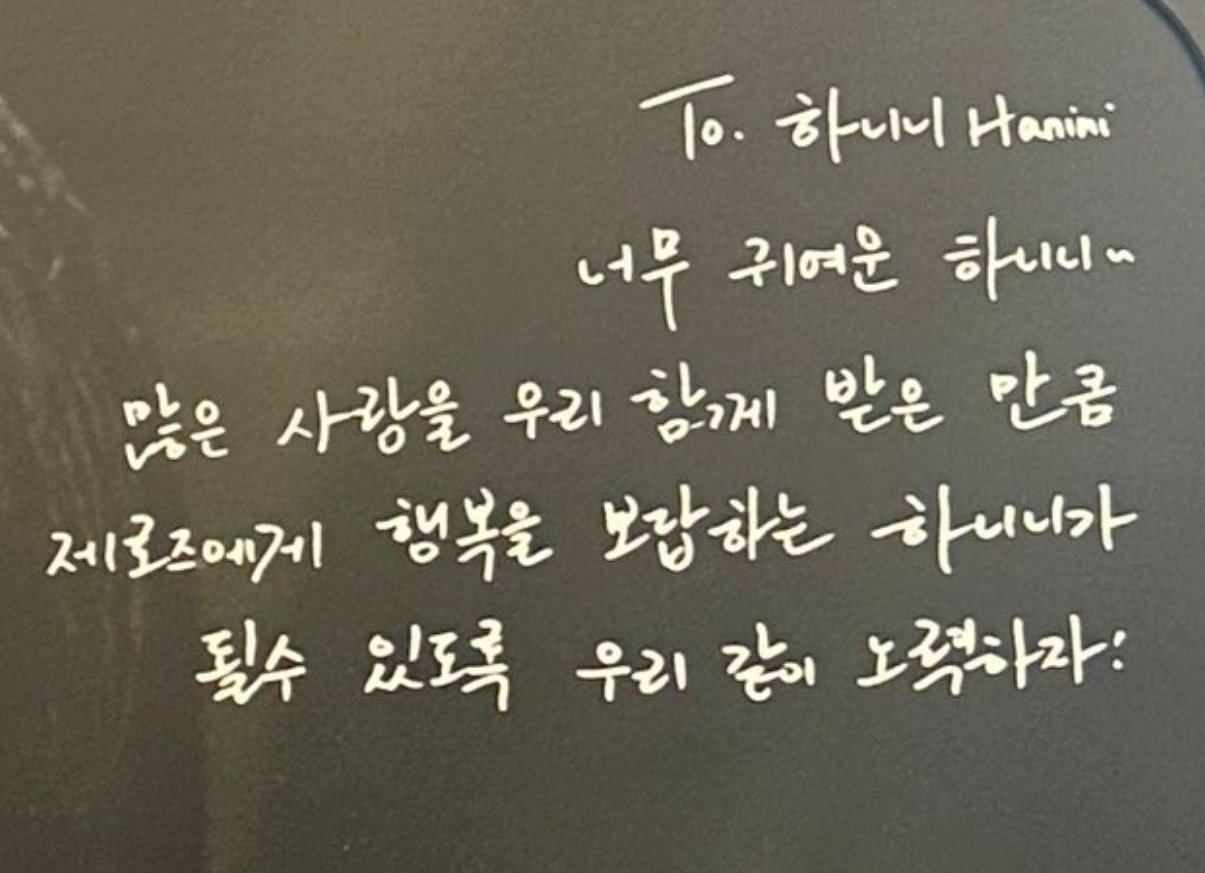 To. 하니니 Hanini
너무 귀여운 하니니~
많은 사랑을 우리 함께 받은 만큼
제로즈에게 행복을 보답하는 하니니가
될수 있도록 우리 같이 노력하자!